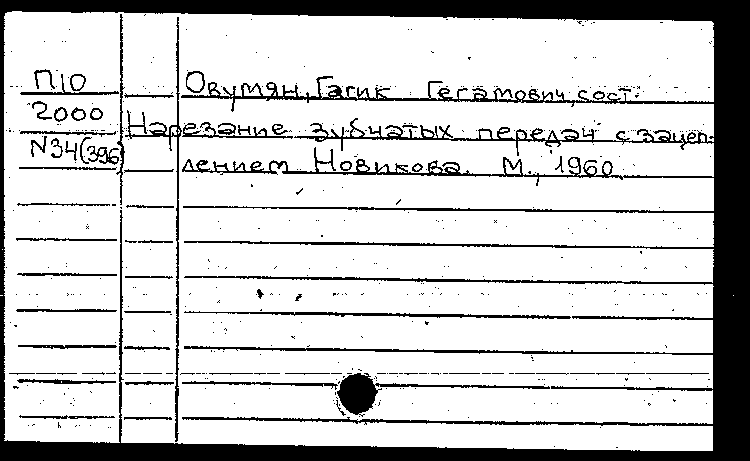 П10
2000
N34(396)
Овумян, Гагик Гегамович, сост.
Нарезание зубчатых передач с зацеп-
лением Новикова. М., 1960.